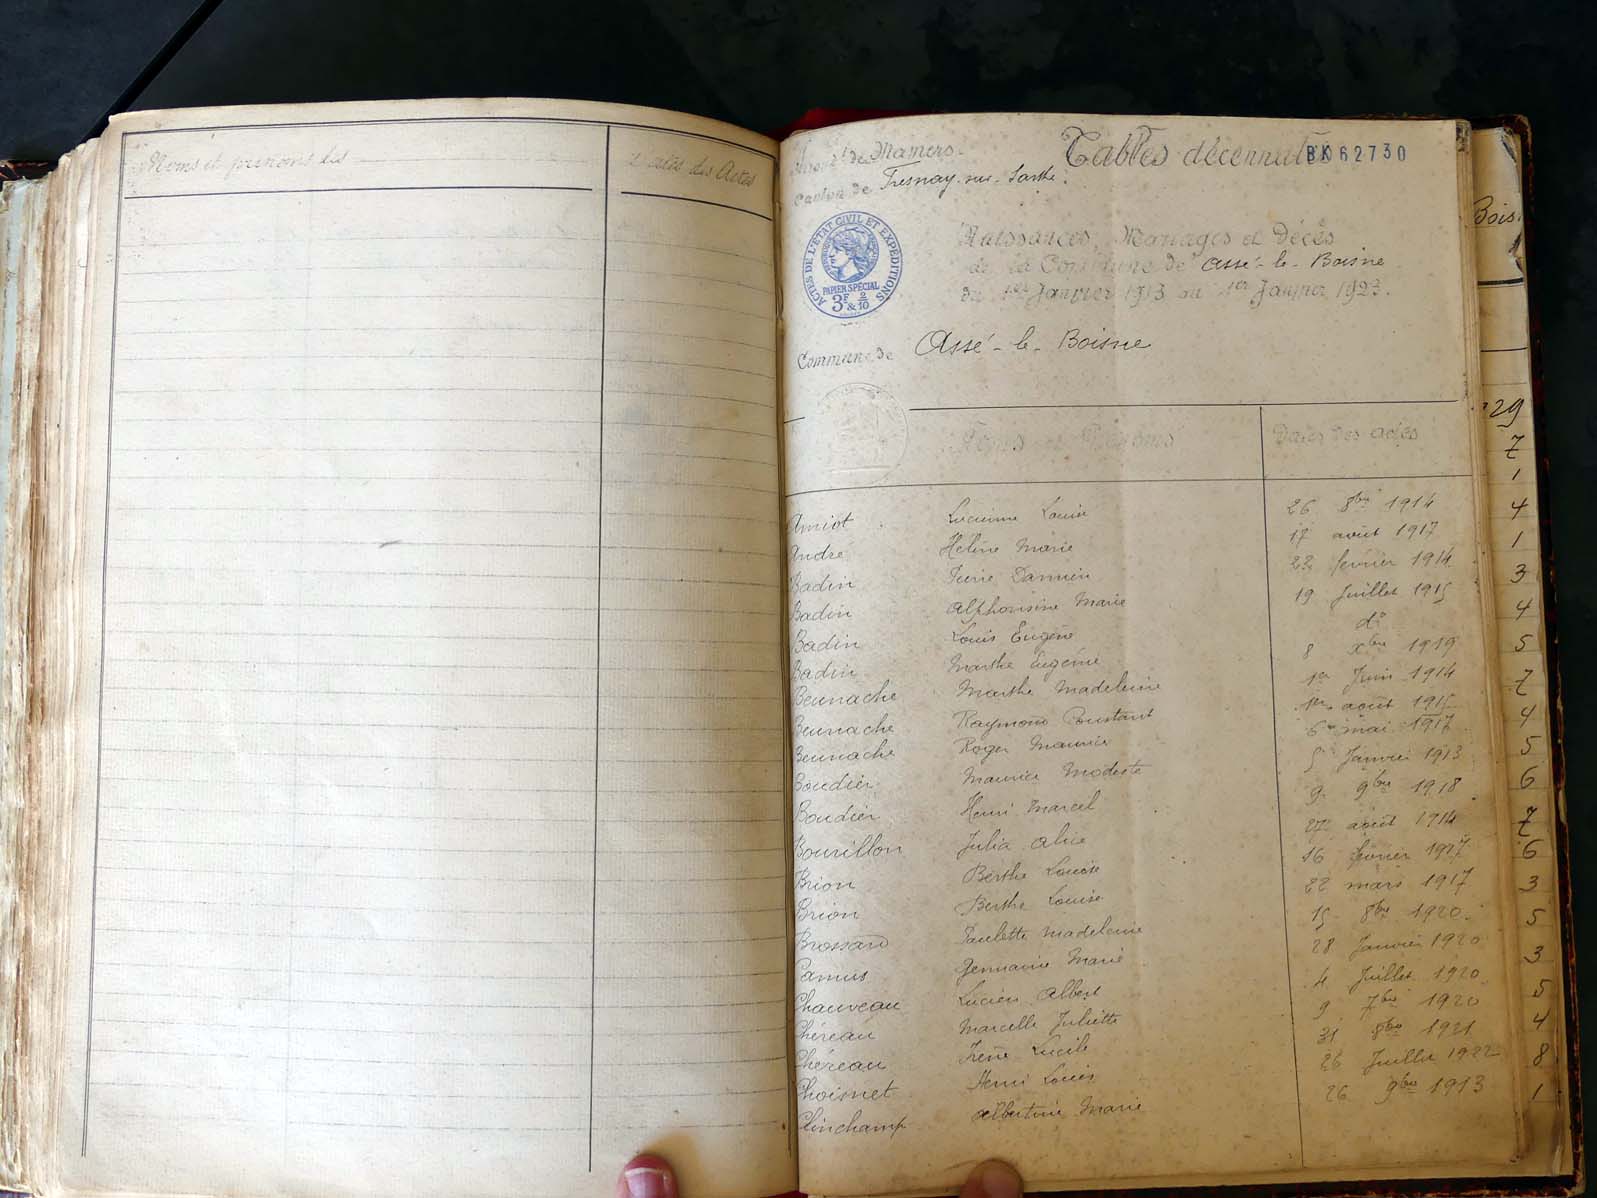 Noms et prénoms des
Dates des Actes
Arrond.t de Mamers.
Tables décennales
BK 62730
Canton de Fresnay-sur-Sarthe.
ACTES DE L'ETAT CIVIL ET EXPEDITIONS
PAPIER SPÉCIAL
3F & 2/10
Naissances, Mariages et Décès
de la Commune de Assé-le-Boisne
du 1er Janvier 1913 au 1er Janvier 1923.
Commune de Assé-le-Boisne
Noms et Prénoms Dates des actes
Amiot Lucienne Louise 26 8bre 1914
André Hélène Marie 17 août 1917
Badin Damien 22 février 1914
Badin Alphonsine Marie 19 Juillet 1915
Badin Louis Eugène do
Badin Marthe Eugénie 8 Xbre 1919
Beunache Marthe Madeleine 1er Juin 1914
Beunache Raymond Constant 1er août 1915
Beunache Roger Maurice 6 mai 1917
Boudier Maurice Modeste 5 Janvier 1913
Boudier Henri Marcel 9 9bre 1918
Bourillon Julia Alice 27 août 1914
Brion Berthe Louise 16 février 1917
Brion Berthe Louise 22 mars 1917
Brossard Paulette Madeleine 15 8bre 1920
Camus Germaine Marie 28 Janvier 1920
Chauveau Lucien Albert 4 Juillet 1920
Chéreau Marcelle Juliette 9 7bre 1920
Chéreau Irène Lucile 31 8bre 1921
Choisnet Henri Louis 26 Juillet 1922
Clinchamp Albertine Marie 26 9bre 1913
Bois
29
7
1
4
1
3
4
5
7
4
5
6
7
6
3
5
3
5
4
8
1